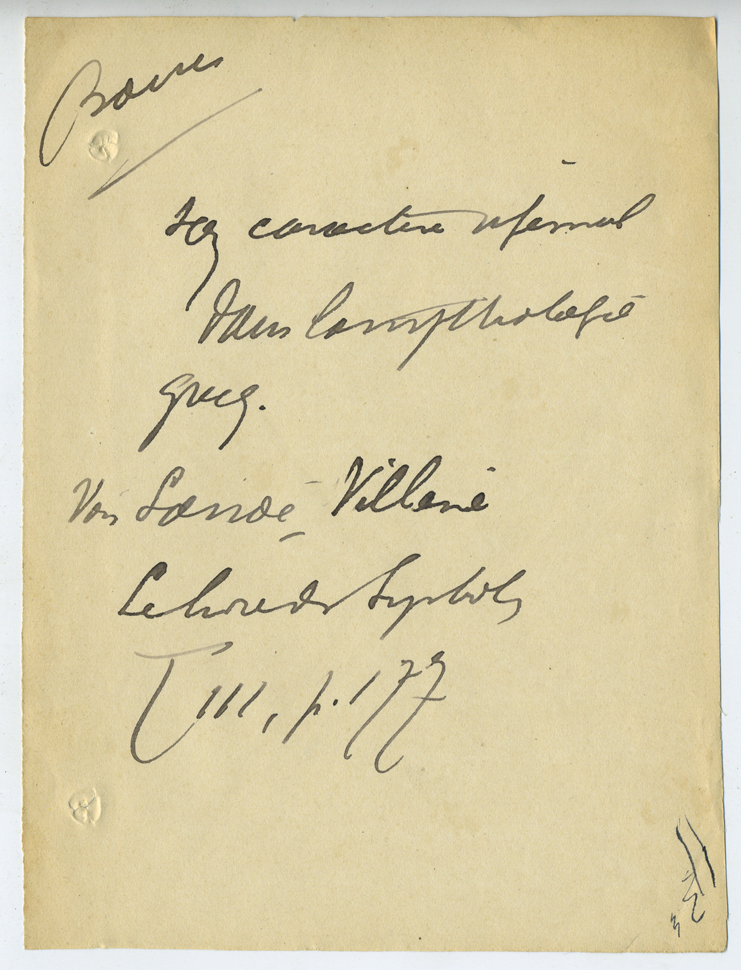 caractère infernal
dans la mythologie
grecq.
Voir Lanoë-Villène
Le Livre des Symboles
T III, p. 177